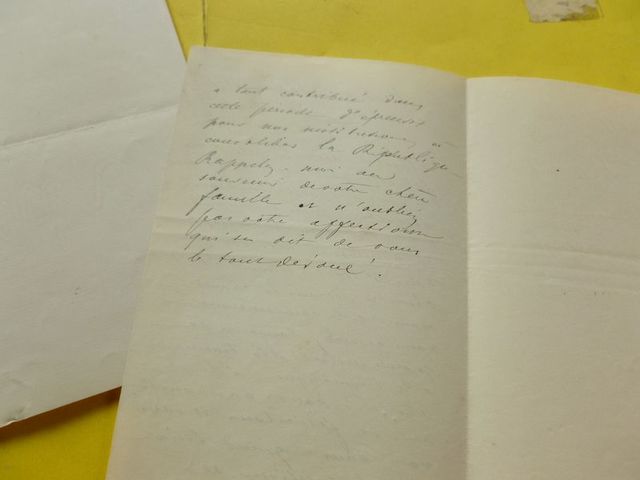 a tant contribué dans
cette période d'épreuves
pour nos institutions, à
consolider la République.
Rappelez-moi au
souvenir de votre chère
famille et n'oubliez
pas votre affectionné
qui se dit de vous
le tout dévoué.